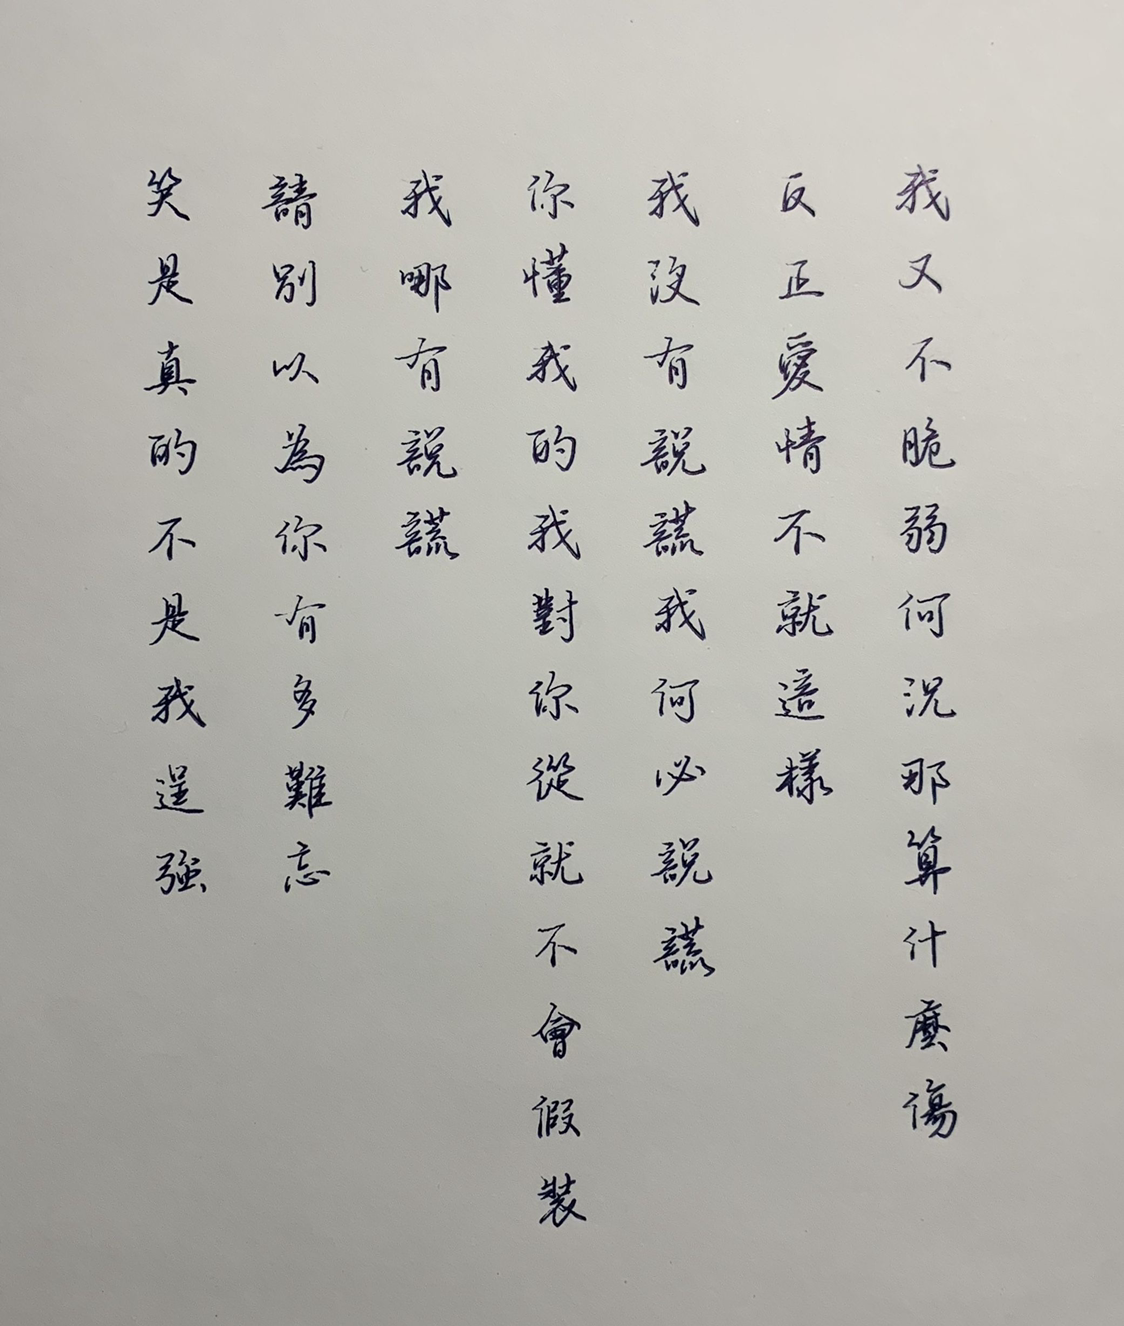 我又不脆弱何況那算什麼傷
反正愛情不就這樣
我沒有說謊我何必說謊
你懂我的我對你從就不會假裝
我哪有說謊
請別以為你有多難忘
笑是真的不是我逞強